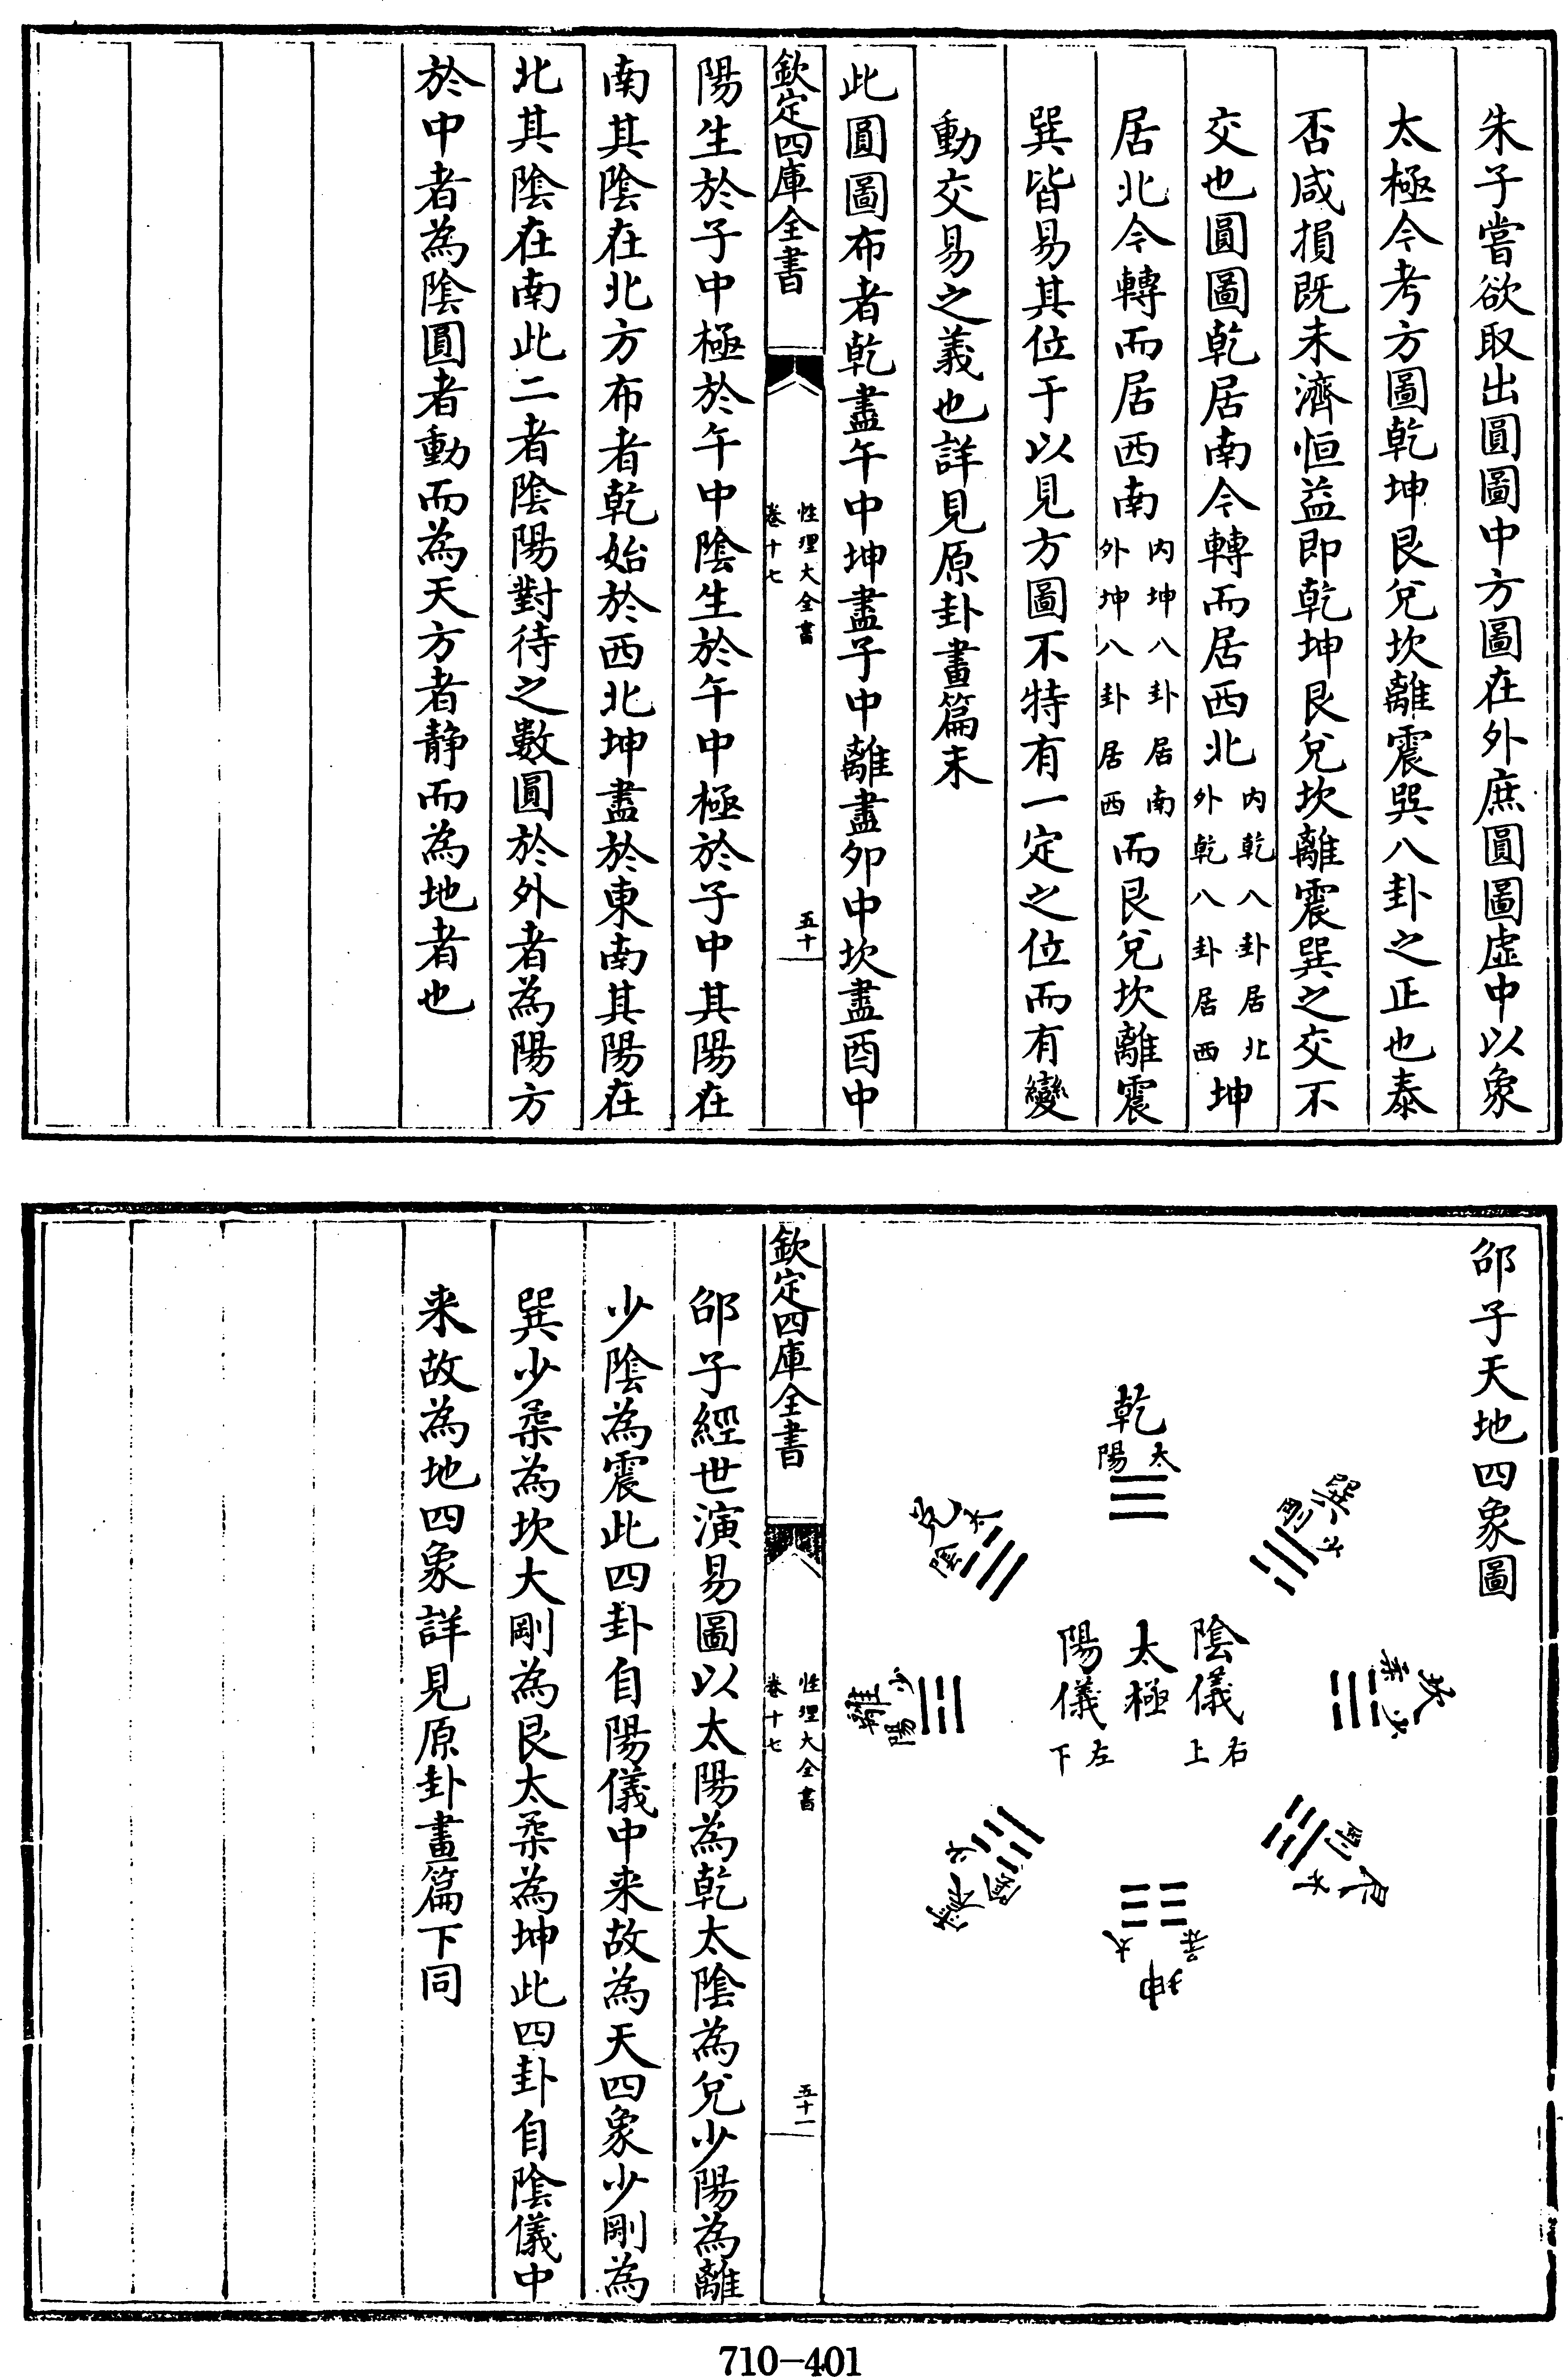 朱子嘗欲取出圓圖中方圖在外庶圓圖虛中以象
太極今考方圖乾坤艮兌坎離震巽八卦之正也泰
否咸損既未濟恒益即乾坤艮兌坎離震巽之交不
交也圓圖乾居南今轉而居西北内乾八卦居北外乾八卦居西坤
居北今轉而居西南内坤八卦居南外坤八卦居西而艮兌坎離震
巽皆易其位于以見方圖不特有一定之位而有變
動交易之義也詳見原卦畫篇末
此圓圖布者乾盡午中坤盡子中離盡卯中坎盡酉中
欽定四庫全書
性理大全書
卷十七
五十
陽生於子中極於午中陰生於午中極於子中其陽在
南其陰在北方布者乾始於西北坤盡於東南其陽在
北其陰在南此二者陰陽對待之數圓於外者為陽方
於中者為陰圓者動而為天方者静而為地者也
邵子天地四象圖
乾 太陽
巽 少剛
坎 少柔
艮 太剛
坤 太柔
震 少陰
離 少陽
兌 太陰
陰儀 右上
太極
陽儀 左下
欽定四庫全書
性理大全書
卷十七
五十一
邵子經世演易圖以太陽為乾太陰為兌少陽為離
少陰為震此四卦自陽儀中来故為天四象少剛為
巽少柔為坎大剛為艮太柔為坤此四卦自陰儀中
来故為地四象詳見原卦畫篇下同
710-401